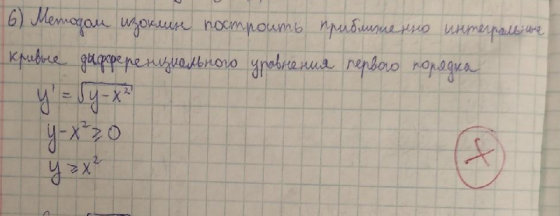 6) Методом изоклин построить приближенно интегральные
кривые дифференциального уравнения первого порядка
y' = √y-x²
y-x² ≥ 0
y ≥ x²
+